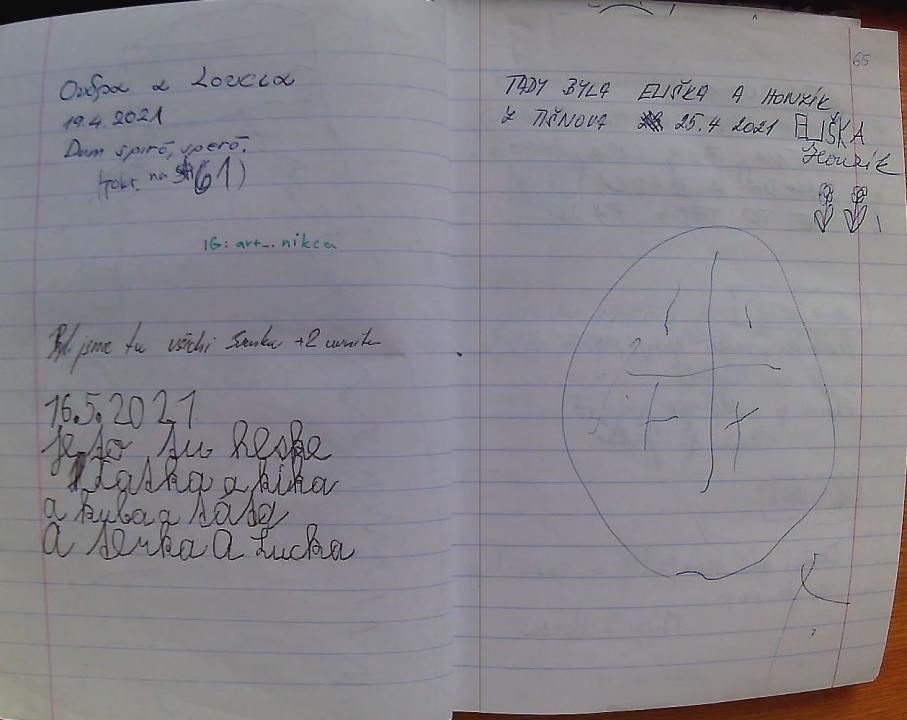 a Loucia
19.4.2021
Dum spiró, speró.
(pokr. na 61)
IG: art_.nikca
jsme tu všichi +2
16.5.2021
je to tu heske
Katka a kika
a kuba a sasa
a terka a Lucka
65
TADY BYLA ELIŠKA A HONZÍK
Z TIŠNOVA 25.4 2021 ELIŠKA
Honzík